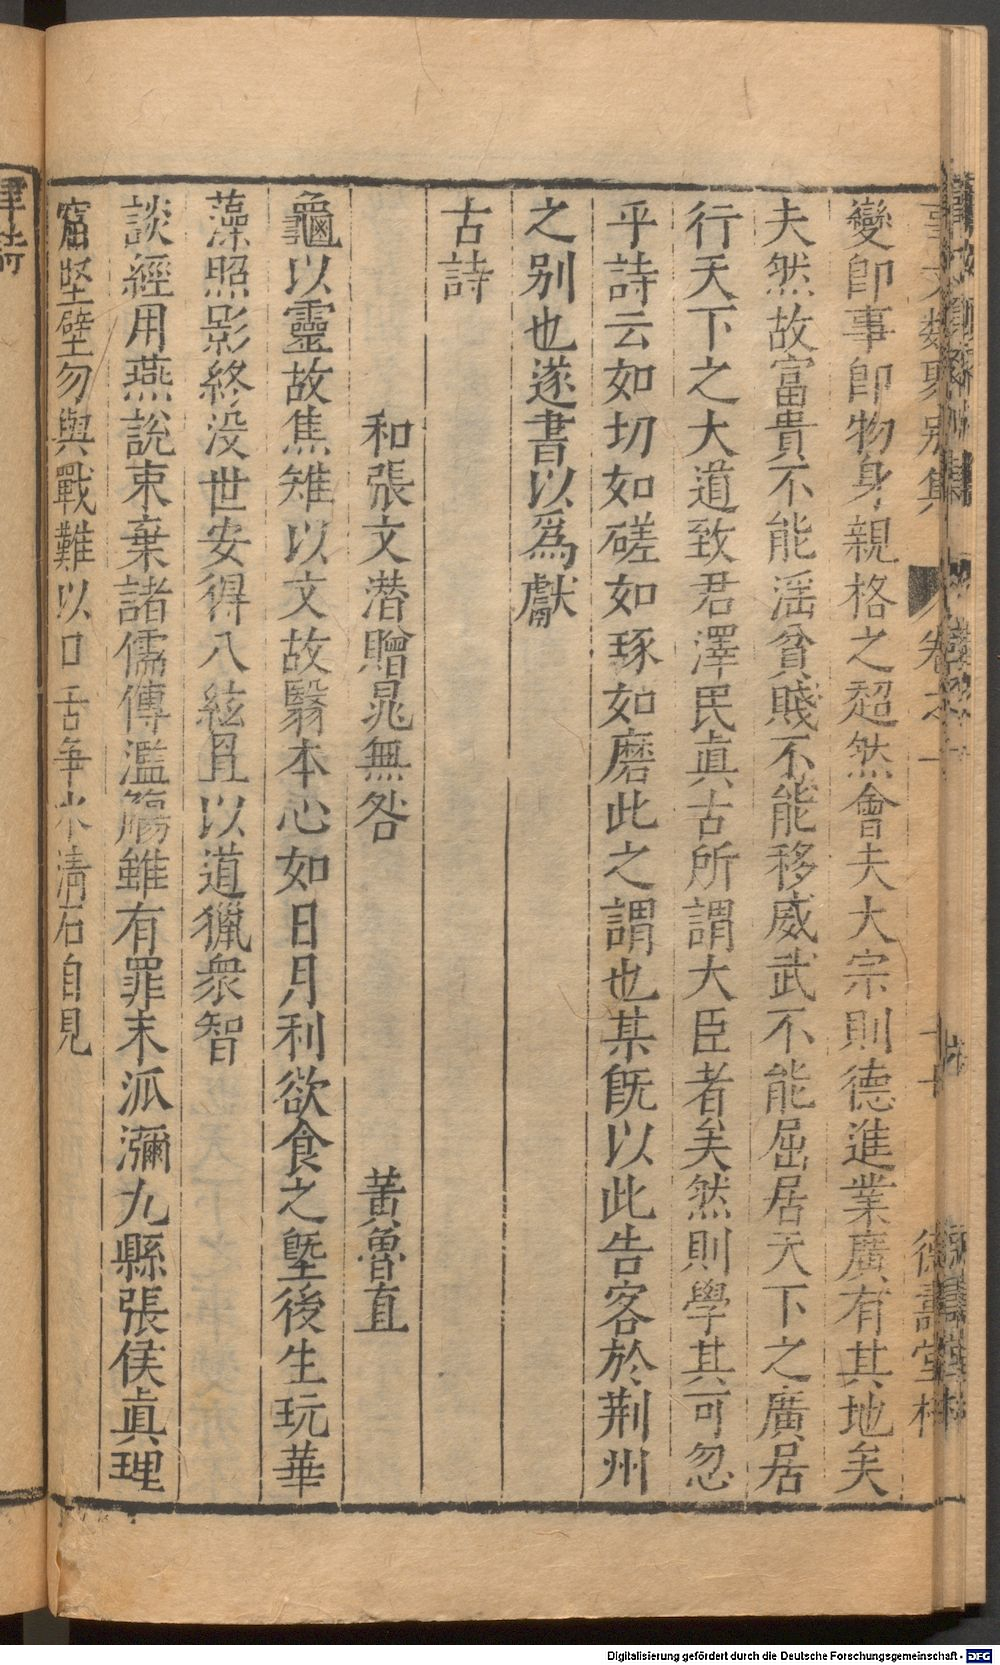 事文類聚別集 卷之十一 德壽堂梓
變卽事卽物身親格之超然會夫大宗則德進業廣有其地矣
夫然故富貴不能滛貧賤不能移威武不能屈居天下之廣居
行天下之大道致君澤民眞古所謂大臣者矣然則學其可忽
乎詩云如切如磋如琢如磨此之謂也某旣以此告客於荆州
之别也遂書以爲獻
古詩
和張文潜贈晁無咎 黃魯直
龜以靈故焦雉以文故翳本心如日月利欲食之墍後生玩華
藻照影終没世安得八絃罝以道獵衆智
談經用燕說束棄諸儒傳濫觴雖有罪末派瀰九縣張侯眞理
窟堅壁勿與戰難以口舌爭水清石自見
Digitalisierung gefördert durch die Deutsche Forschungsgemeinschaft - DFG